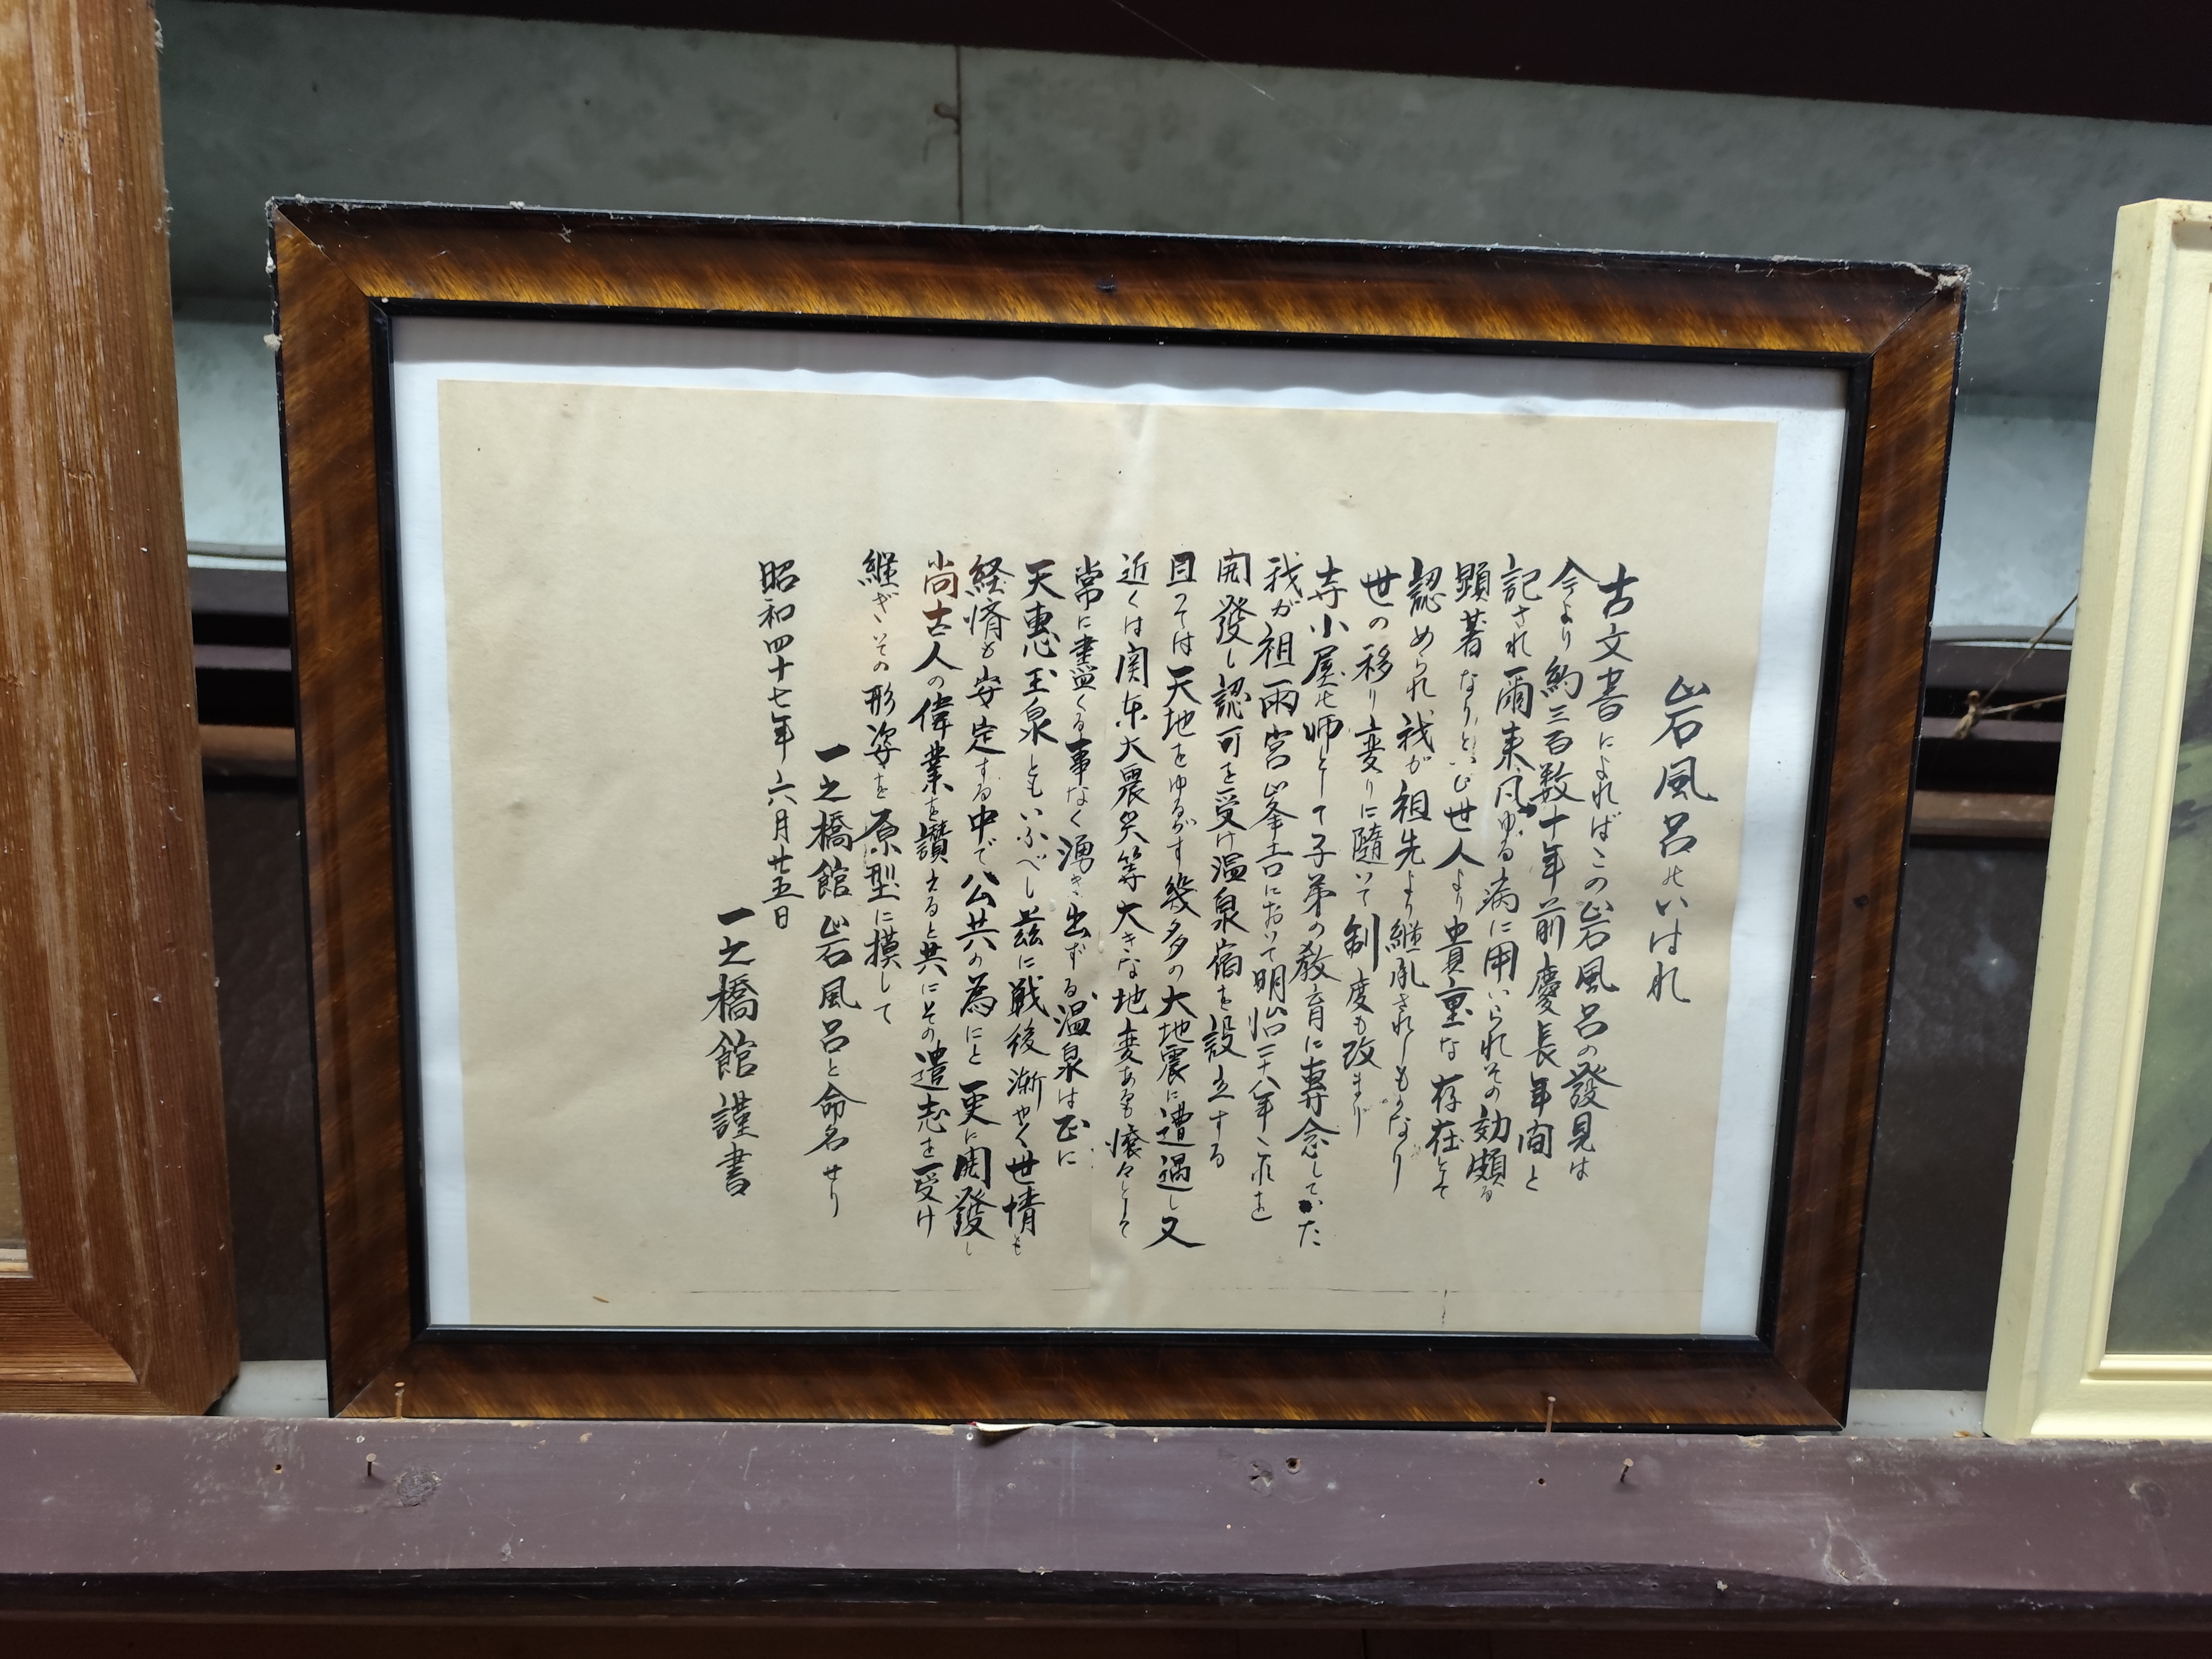 岩風呂のいはれ
古文書によればこの岩風呂の發見は
今より約三百数十年前慶長年間と
記され爾来凡ゆる病に用いられその効頗る
顕著なりといひ世人より貴重な存在として
認められ我が祖先より継承されしものなり
世の移り変りに隨いて制度も改まり
寺小屋の师として子弟の教育に専念してかた
我が祖雨宮峯吉において明治二十八年これを
開發し認可を受け温泉宿を設立する
且つては天地をゆるがす幾多の大地震に遭遇し又
近くは関東大震災等大きな地変あるも懐々として
常に盡くる事なく湧き出ずる温泉は正に
天惠玉泉ともいふべし茲に戦後漸やく世情も
経済も安定する中で公共の為にと更に開發し
尚古人の偉業を讃えると共にその遺志を受け
継ぎその形姿を原型に摸して
一之橋館岩風呂と命名せり
昭和四十七年六月廿五日
一之橋館謹書